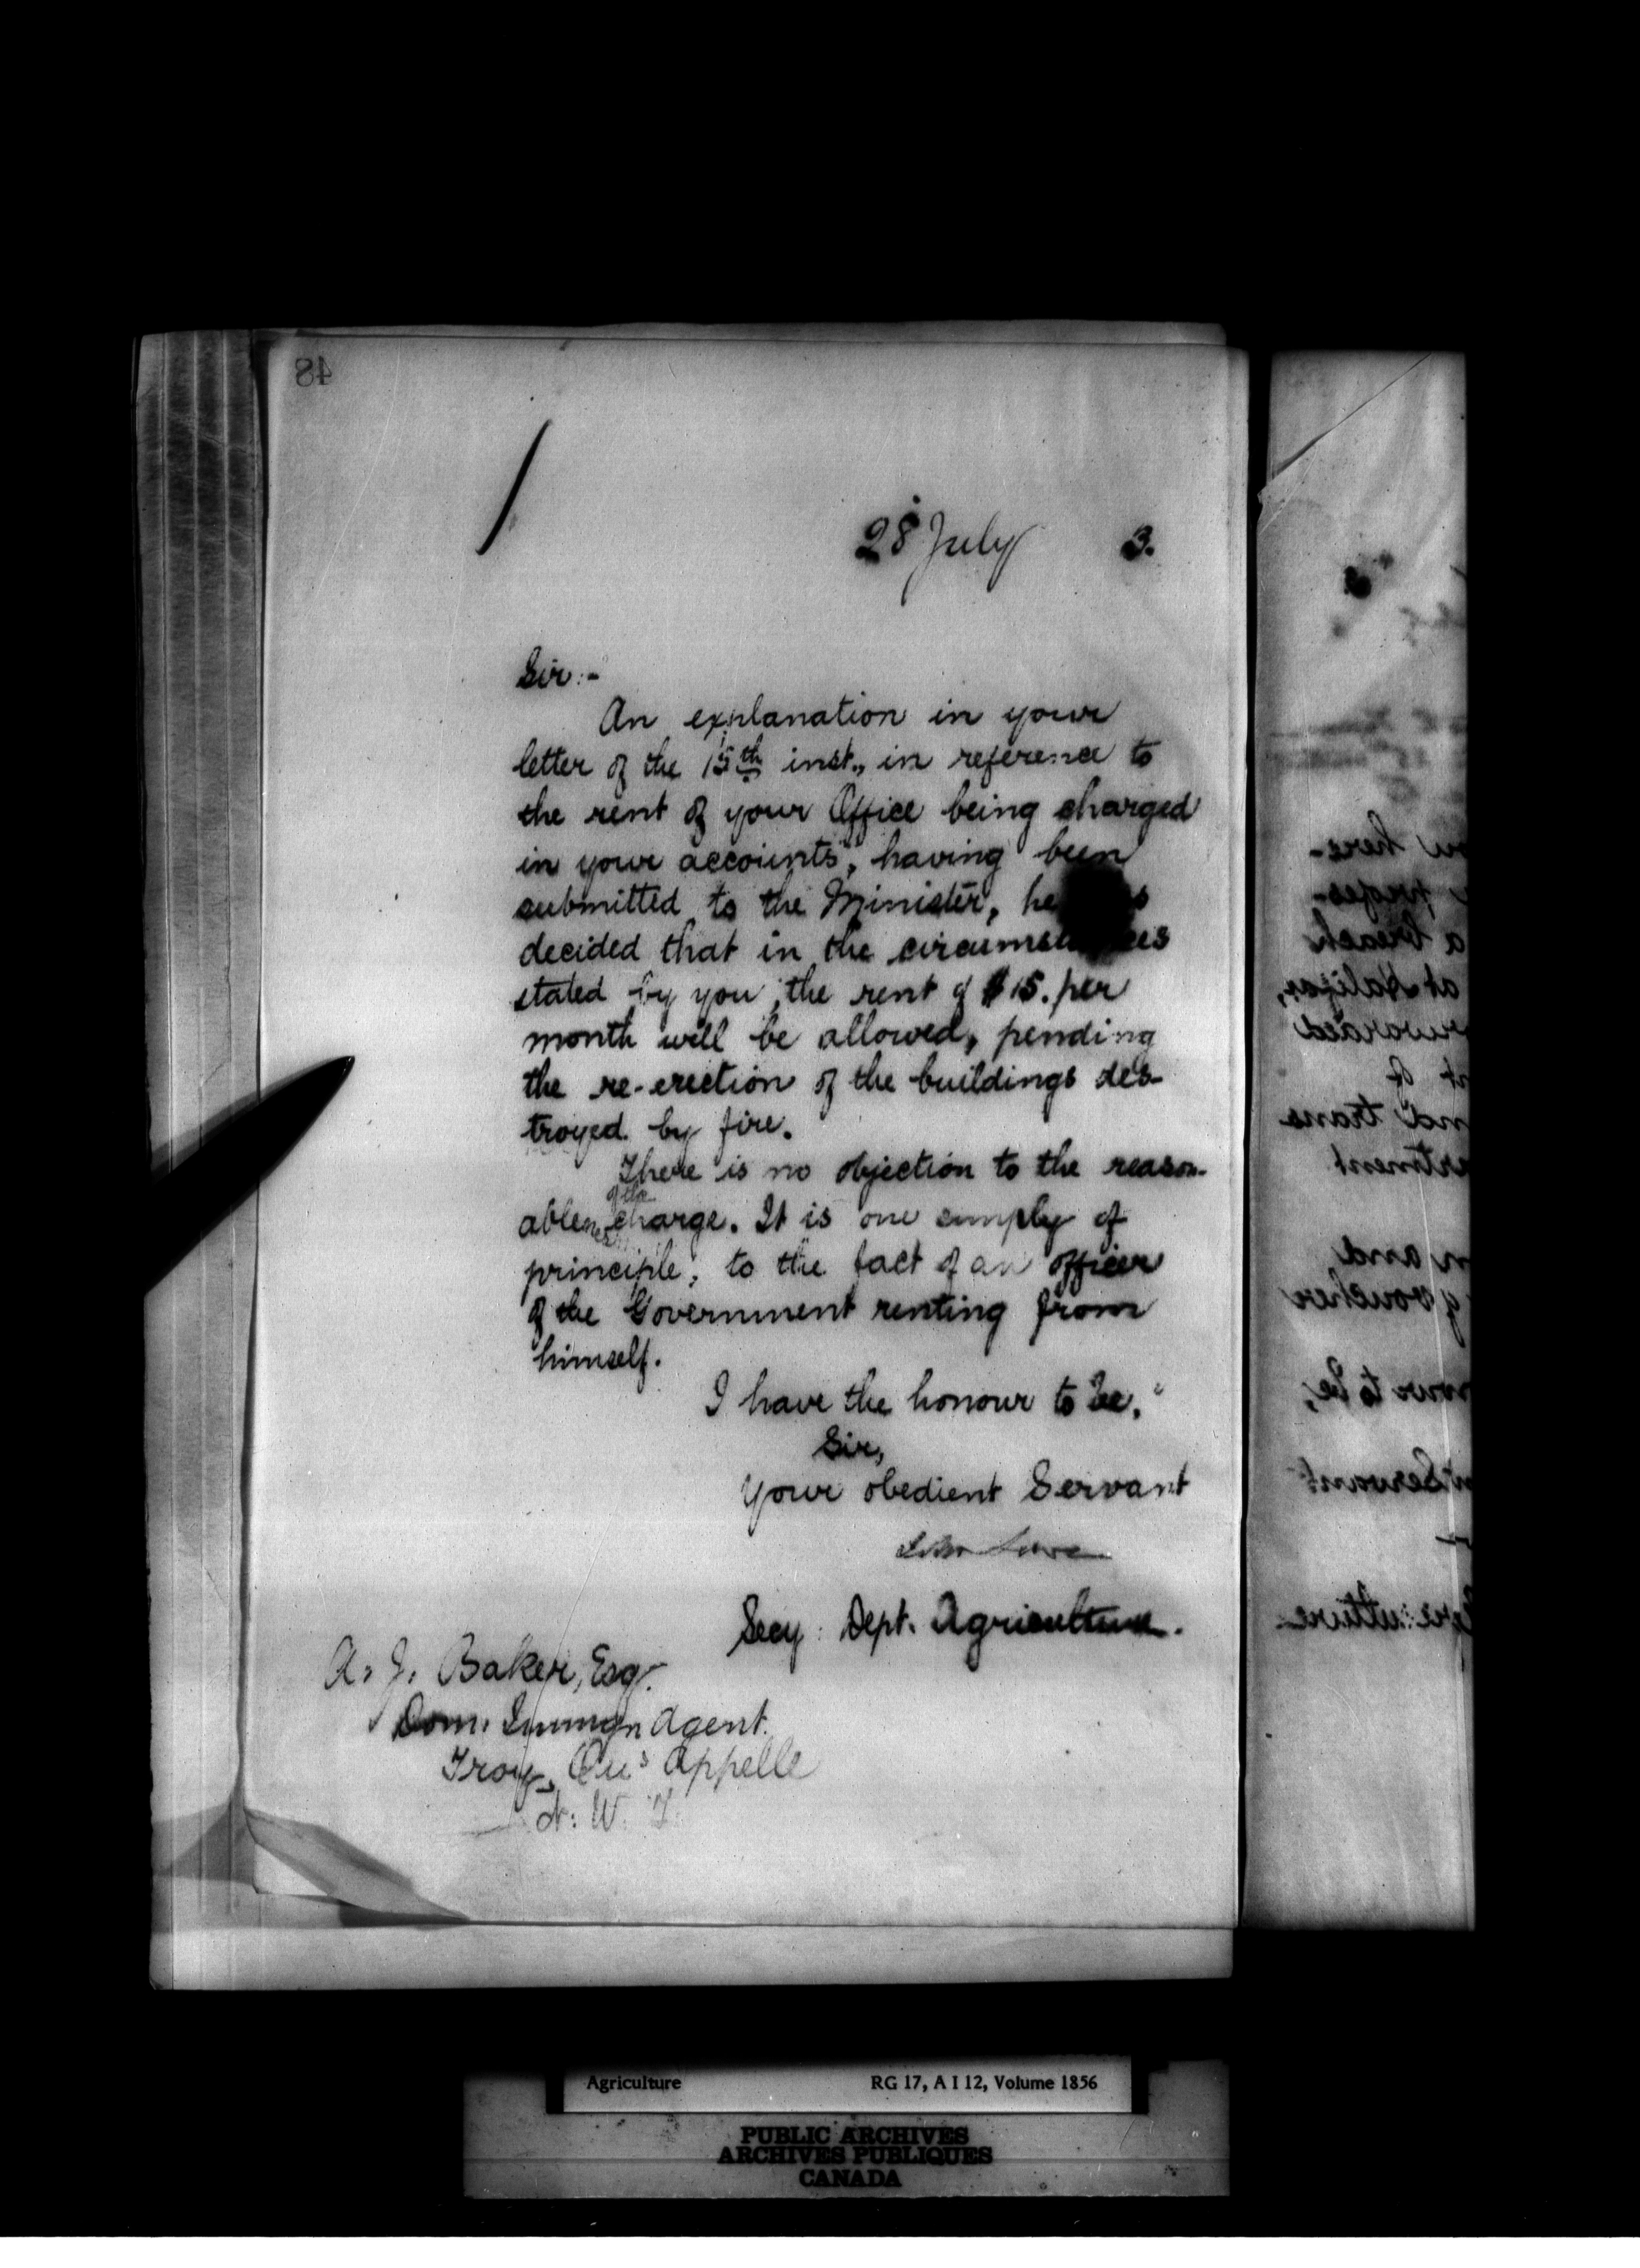 48
28 July 3.
Sir:-
An explanation in your
letter of the 15th inst., in reference to
the rent of your Office being charged
in your accounts, having been
submitted to the Minister, he
decided that in the circumstances
stated by you, the rent of $15. per
month will be allowed, pending
the re-erection of the buildings des-
troyed by fire.
There is no objection to the reason-
ableness of the charge. It is one simply of
principle, to the fact of an officer
of the Government renting from
himself.
I have the honour to be,
Sir,
Your obedient Servant
John Lowe
Secy: Dept. Agriculture.
A. J. Baker, Esq.
Dom. Immgn Agent.
Troy, Qu'Appelle
N. W. T.
here-
a breach
at Halifax,
and trans
and
voucher
to be,
Servant
Agriculture RG 17, A I 12, Volume 1856
PUBLIC ARCHIVES
ARCHIVES PUBLIQUES
CANADA